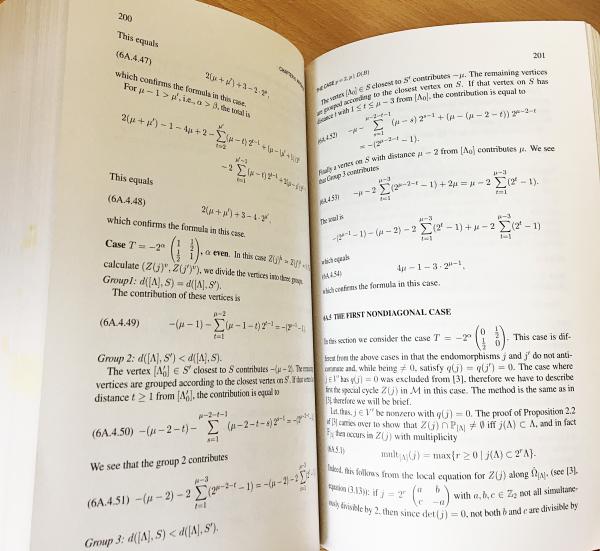 200
This equals
(6A.4.47) 2(μ + μ′) + 3 − 2 · 2^{μ′},
which confirms the formula in this case.
For μ − 1 > μ′, i.e., α > β, the total is
2(μ + μ′) − 1 − 4μ + 2 − \sum_{t=2}^{μ′} (μ − t) 2^{t−1}
− 2 \sum_{t=1}^{μ′−1} (μ − t) 2^{t−1}
This equals
(6A.4.48) 2(μ + μ′) + 3 − 4 · 2^{μ′},
which confirms the formula in this case.
Case T = −2^α \begin{pmatrix} 1 & \frac{1}{2} \\ \frac{1}{2} & 1 \end{pmatrix}, α even. In this case
calculate (Z(j)^v, Z(j′)^v), we divide the vertices into three groups.
Group1: d([Λ], S′) = d([Λ], S).
The contribution of these vertices is
(6A.4.49) −(μ − 1) − \sum_{t=1}^{μ−2} (μ − 1 − t) 2^{t−1} = −(2^{μ−1} − 1).
Group 2: d([Λ], S′) < d([Λ], S).
The vertex [Λ′_0] ∈ S′ closest to S contributes −(μ − 2). The remaining
vertices are grouped according to the closest vertex on S′. If that vertex
distance t ≥ 1 from [Λ′_0], the contribution is equal to
(6A.4.50) −(μ − 2 − t) − \sum_{s=1}^{μ−2−t−1} (μ − 2 − t − s) 2^{s−1}
We see that the group 2 contributes
(6A.4.51) −(μ − 2) − 2 \sum_{t=1}^{μ−3} (2^{μ−2−t} − 1) = −(μ − 2) − 2
Group 3: d([Λ], S) < d([Λ], S′).
THE CASE p = 2, p | D(B) 201
The vertex [Λ_0] ∈ S closest to S′ contributes −μ. The remaining vertices
are grouped according to the closest vertex on S. If that vertex on S has
distance t with 1 ≤ t ≤ μ − 3 from [Λ_0], the contribution is equal to
(6A.4.52) −μ − \sum_{s=1}^{μ−2−t−1} (μ − s) 2^{s−1} + (μ − (μ − 2 − t)) 2^{μ−2−t}
= −(2^{μ−2−t} − 1).
Finally a vertex on S with distance μ − 2 from [Λ_0] contributes μ. We see
that Group 3 contributes
(6A.4.53) −μ − 2 \sum_{t=1}^{μ−3} (2^{μ−2−t} − 1) + 2μ = μ − 2 \sum_{t=1}^{μ−3} (2^t − 1).
The total is
−(2^{μ−1} − 1) − (μ − 2) − 2 \sum_{t=1}^{μ−3} (2^t − 1) + μ − 2 \sum_{t=1}^{μ−3} (2^t − 1)
which equals
(6A.4.54) 4μ − 1 − 3 · 2^{μ−1},
which confirms the formula in this case.
6A.5 THE FIRST NONDIAGONAL CASE
In this section we consider the case T = −2^α \begin{pmatrix} 0 & \frac{1}{2} \\ \frac{1}{2} & 0 \end{pmatrix}. This case is dif-
ferent from the above cases in that the endomorphisms j and j′ do not anti-
commute and, while being ≠ 0, satisfy q(j) = q(j′) = 0. The case where
j ∈ V′ has q(j) = 0 was excluded from [3], therefore we have to describe
first the special cycle Z(j) in M in this case. The method is the same as in
[3], therefore we will be brief.
Let, thus, j ∈ V′ be nonzero with q(j) = 0. The proof of Proposition 2.2
of [3] carries over to show that Z(j) ∩ P_{[Λ]} ≠ ∅ iff j(Λ) ⊂ Λ, and in fact
P_{[Λ]} then occurs in Z(j) with multiplicity
(6A.5.1) mult_{[Λ]}(j) = max{r ≥ 0 | j(Λ) ⊂ 2^r Λ}.
Indeed, this follows from the local equation for Z(j) along Ω̂_{[Λ]}, (see [3],
equation (3.13)): if j = 2^r \begin{pmatrix} a & b \\ c & −a \end{pmatrix} with a, b, c ∈ Z_2 not all simultane-
ously divisible by 2, then since det(j) = 0, not both b and c are divisible by